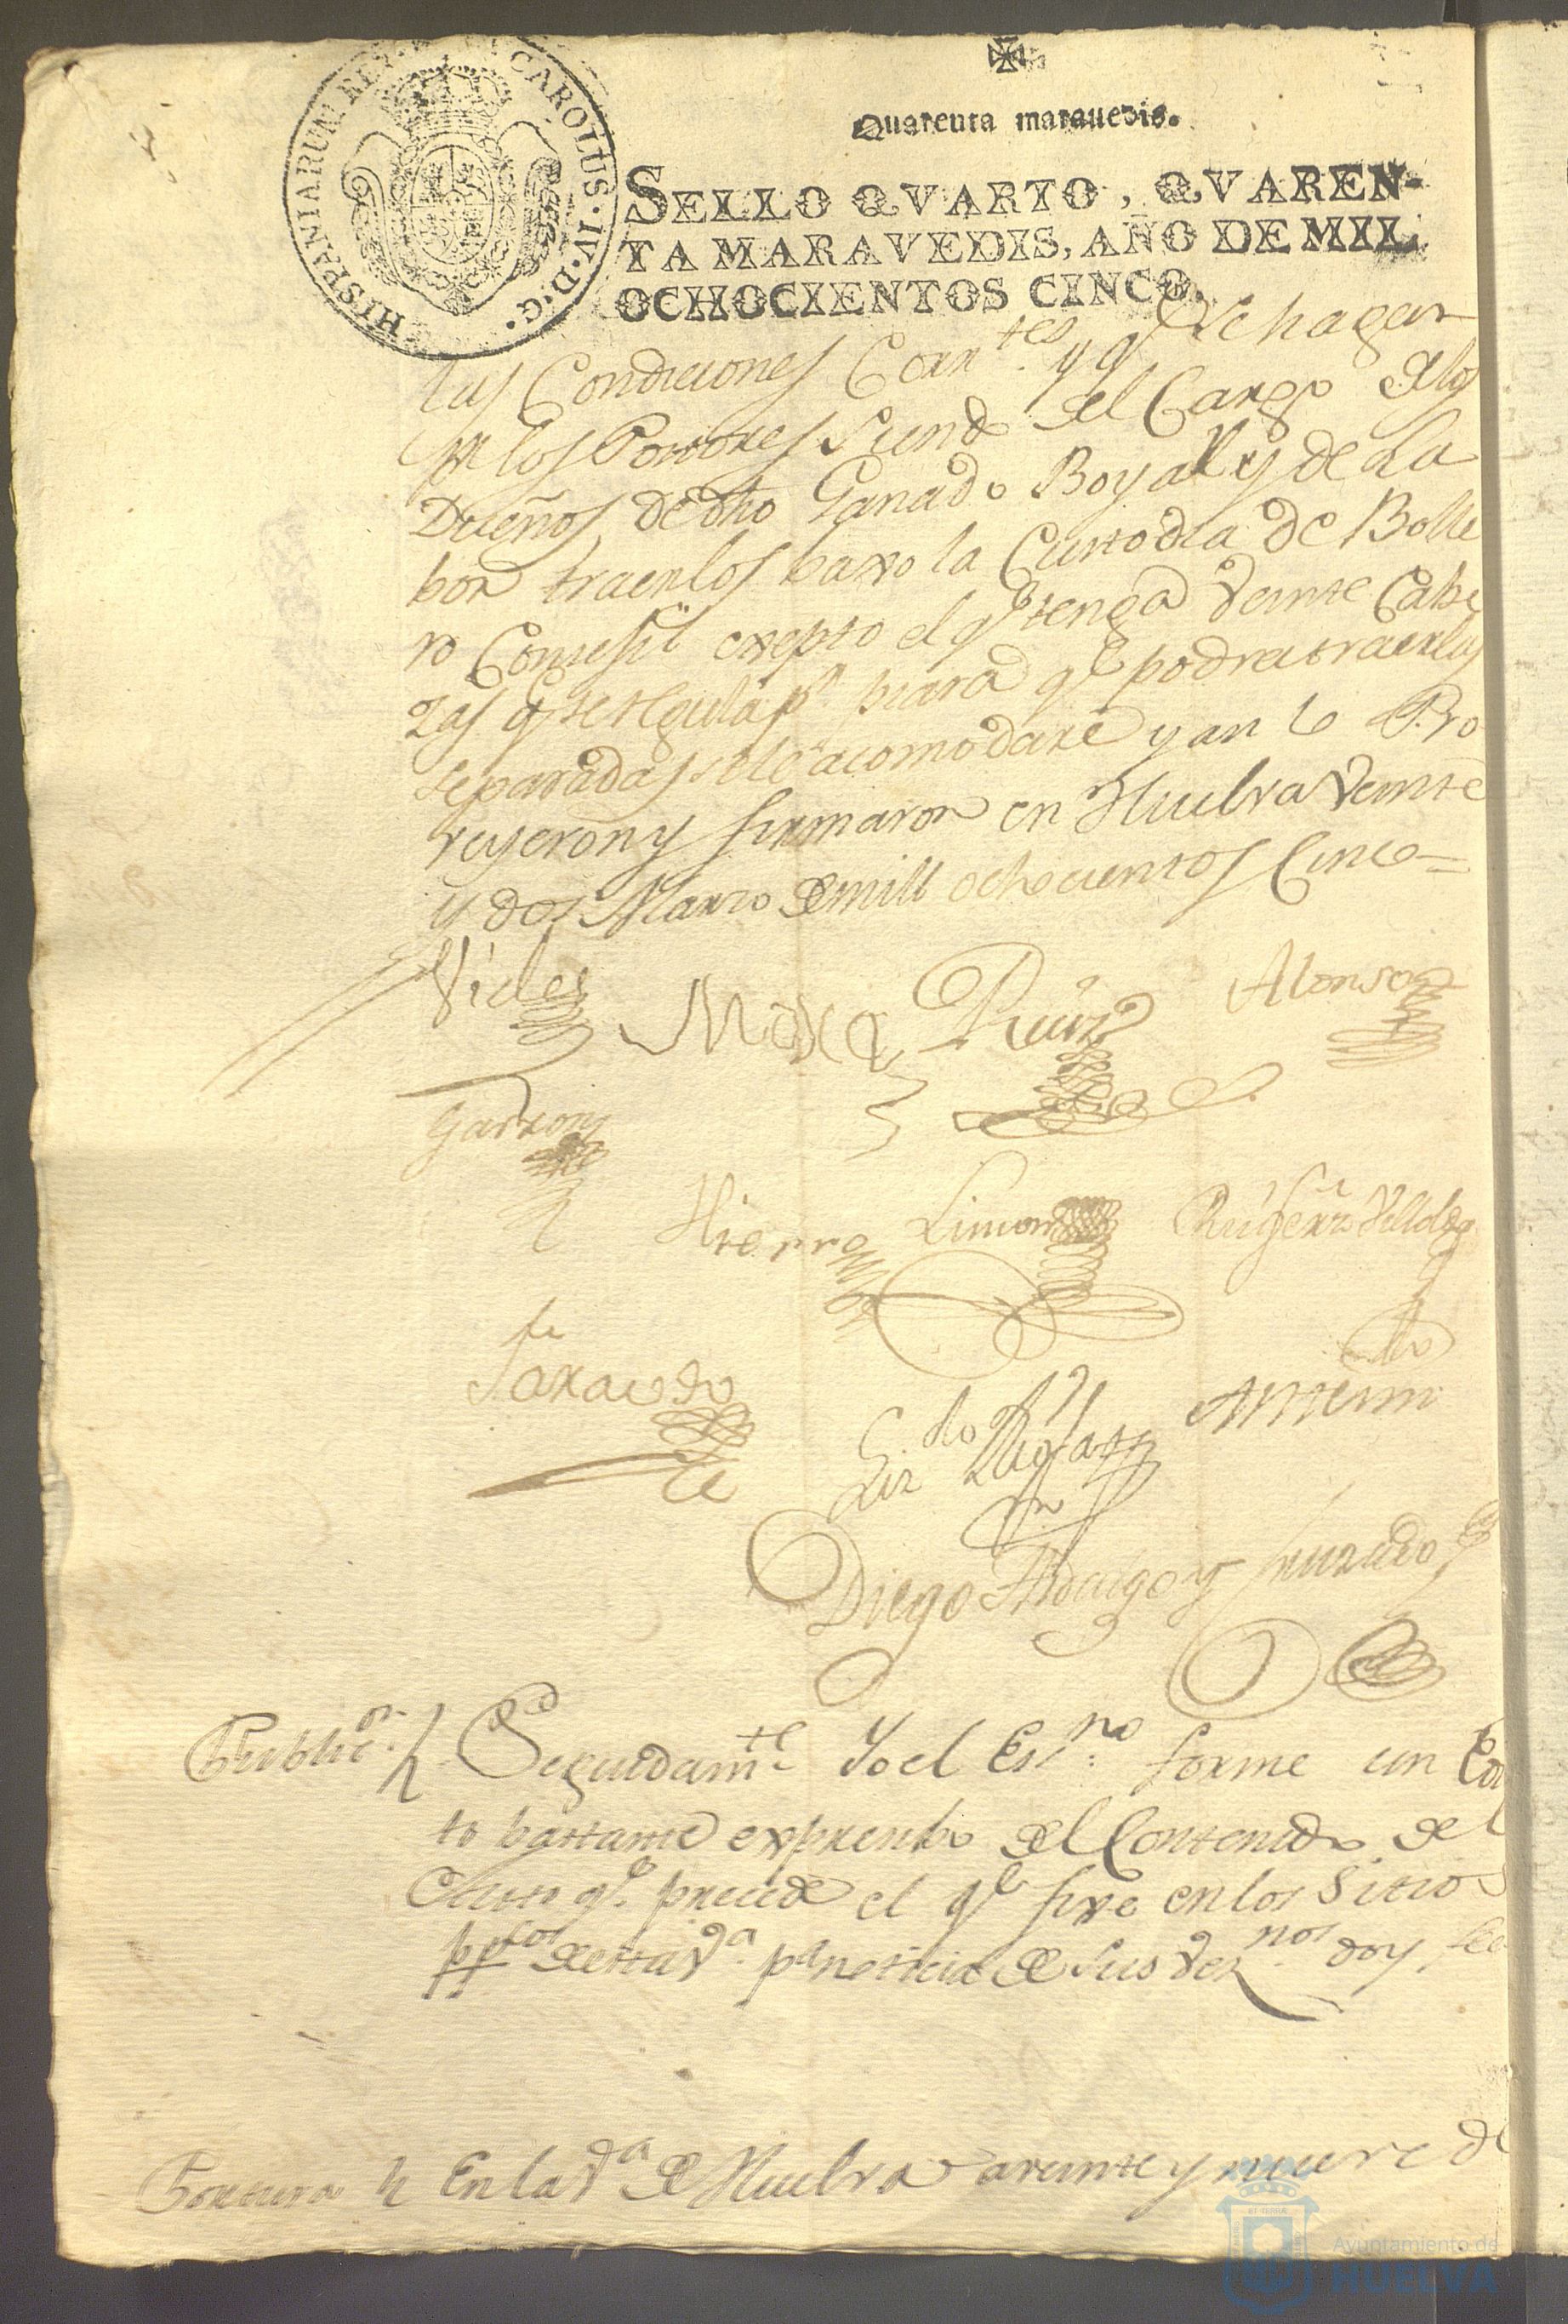 HISPANIARUM REX CAROLUS·IV·D·G·
Quarenta marauedis.
SELLO QVARTO, QVAREN-
TA MARAVEDIS, AÑO DE MIL
OCHOCIENTOS CINCO.
las Condiciones Corrtes y q Se hagan
pr los Postores siendo del Cargo de los
Dueños de dho Ganado Boyal y de La
bor traerlos baxo la Custodia de Bolle
ro Consejil exepto el qe tenga veinte Cabe
zas q se regula pr piara qe podra traerlas
separadas si le acomodare y an lo Pro
veyeron y firmaron en Huelva veinte
y dos Marzo de mill ochocientos Cinco=
Vides Mora Ruiz Alonso
Garzon
Hierro Limon
Saxacedo
Antemi
Diego Hidalgo y Jurado
Public.on Seguidamte Yo el Es.no forme un
to bastante expresibo del Contenido del
Auto qe precede el qe fixe en los Sitios
ppcos de esta va pa noticia de sus veznos doy fee
Postura En la Va de Huelva a veinte y nueve de
Ayuntamiento de
HUELVA